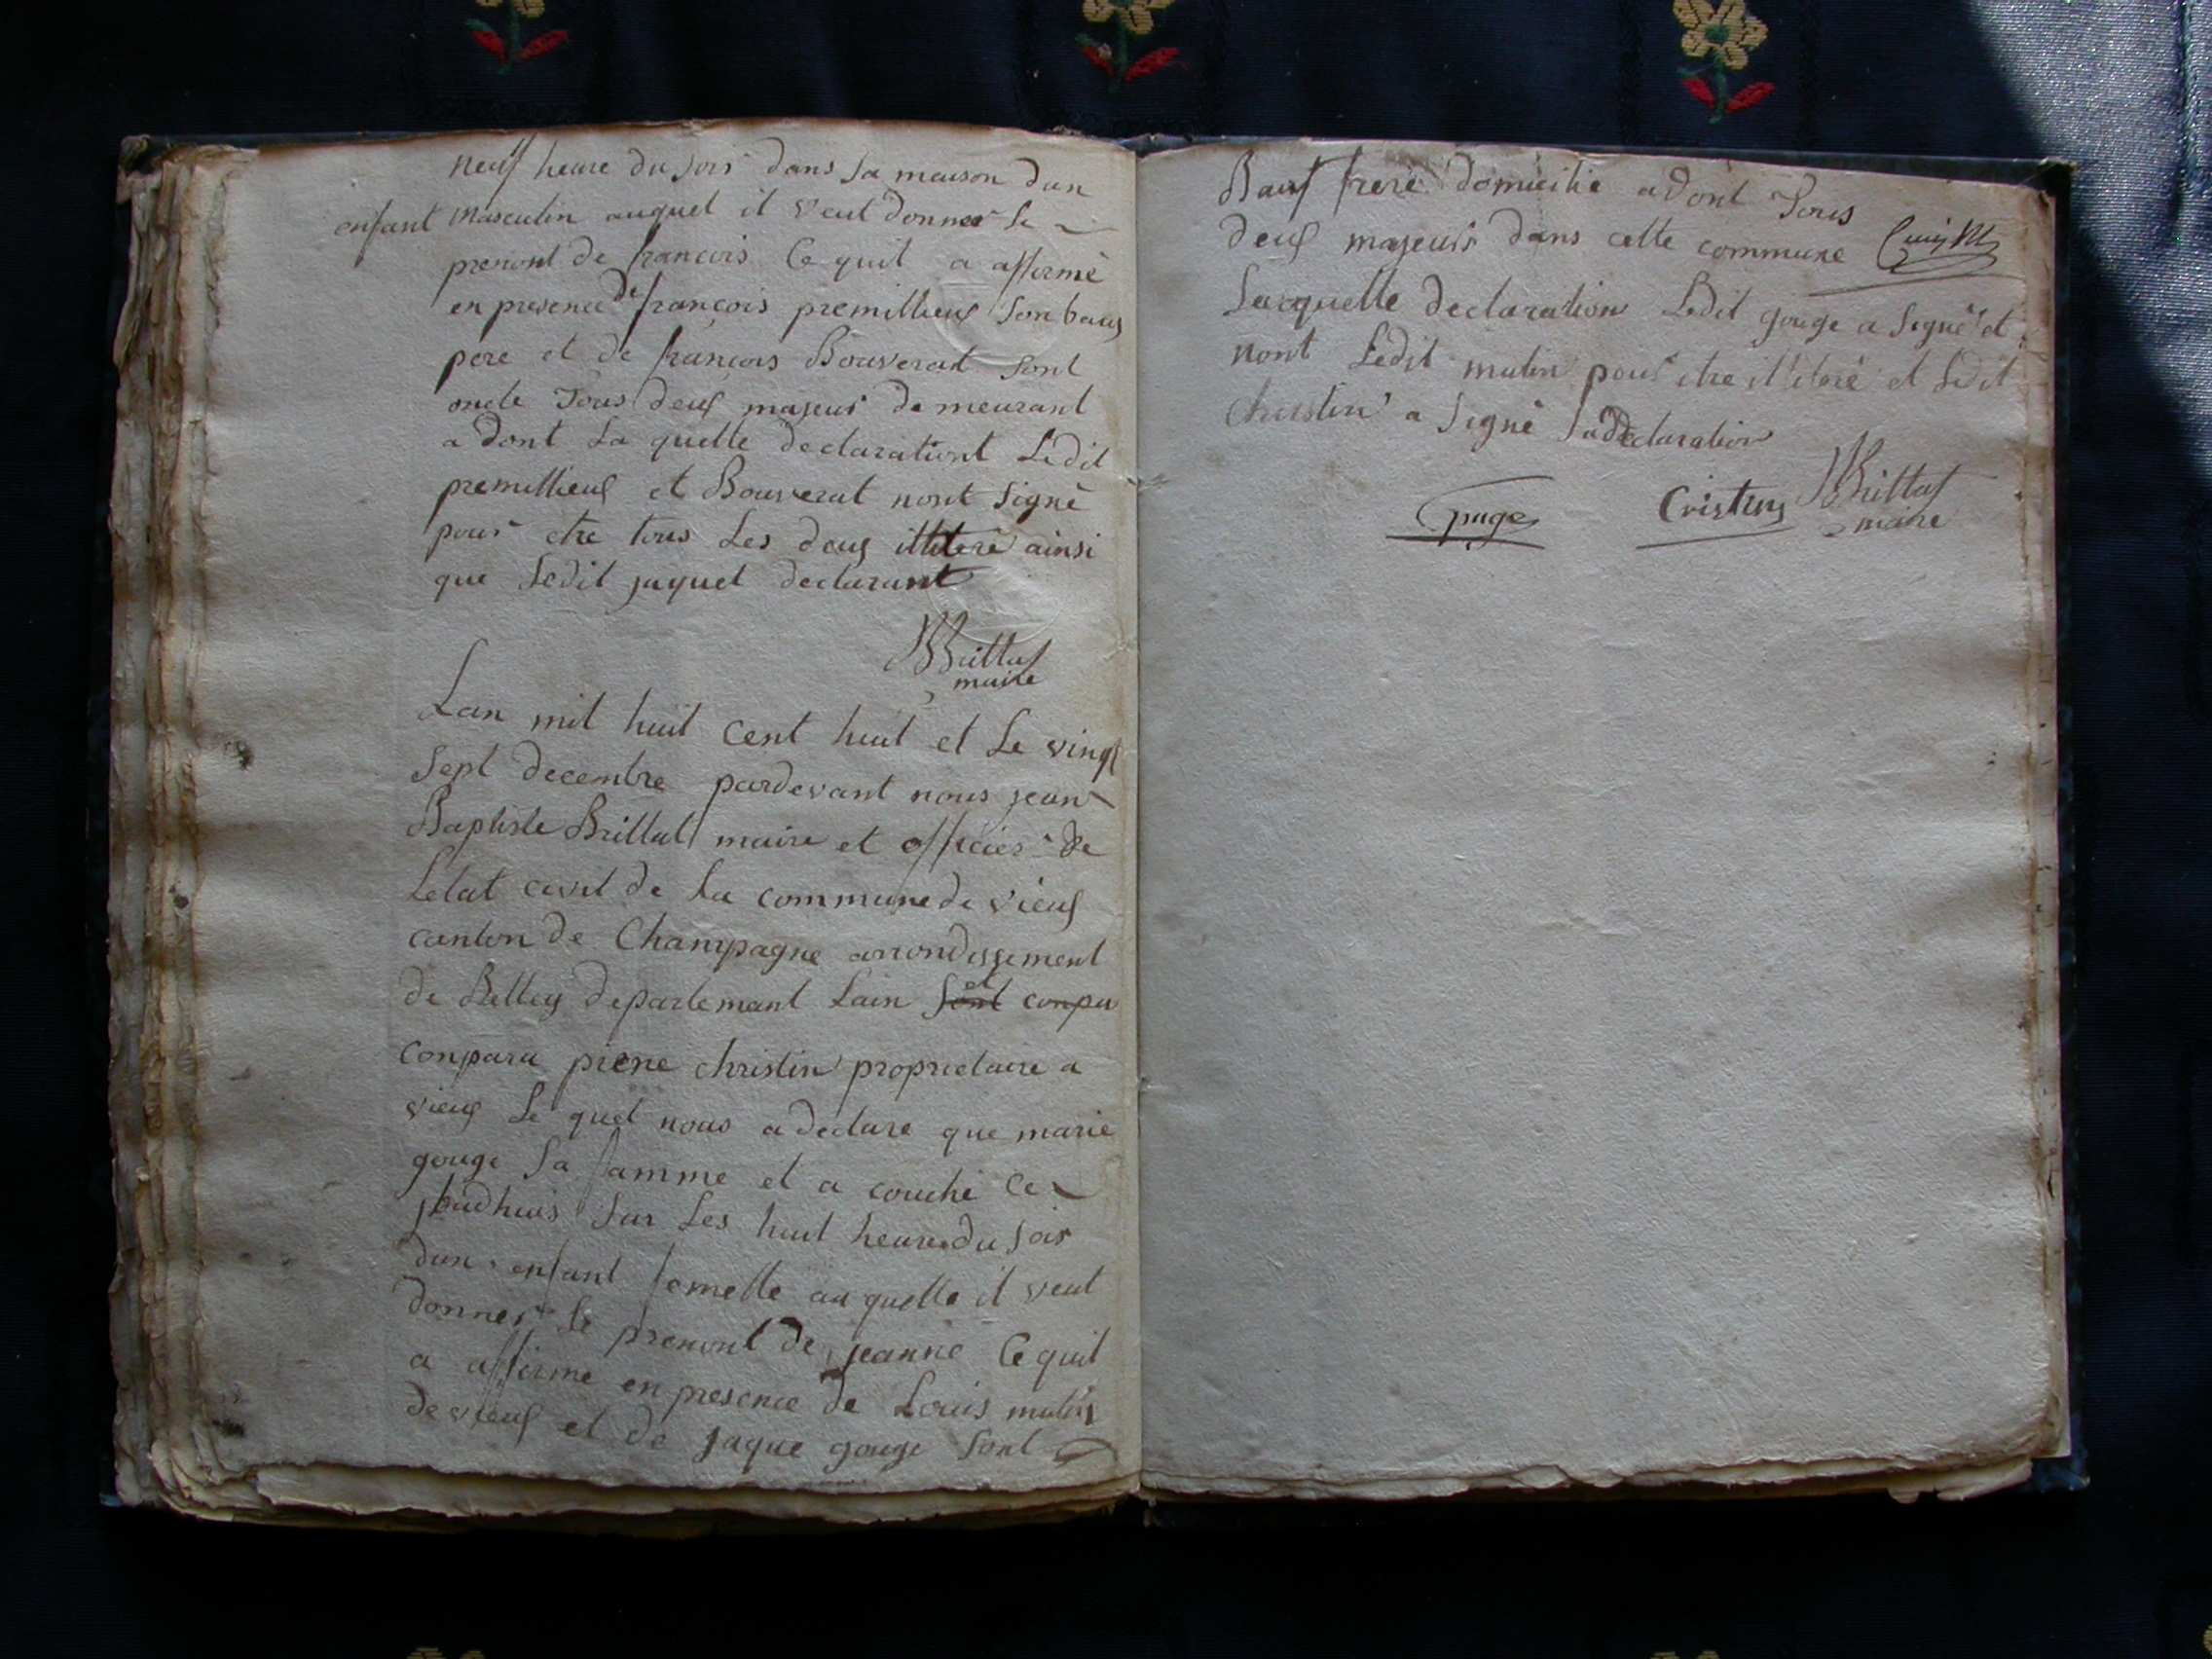 neuf heure du soir dans sa maison dun
enfant masculin auquel il veut donner le
prenont de francois Ce quil a affirmé
en presence de françois premillieuf son beauf
pere et de francois Bouverat sont
oncle Tous deuf majeur demeurant
a dont La quelle declarationt Ledit
premillieuf et Bouverat nont signé
pour etre tous Les deuf illiteré ainsi
que Ledit jaquet declarant
Brillat
maire
Lan mil huit cent huit et Le vingt
sept decembre pardevant nous jean
Baptiste Brillat maire et officier de
Letat civil de La commune de vieuf
canton de Champagne arrondissement
de Belley departemant Lain sont et conpa
conparu pierre christin propriétaire a
vieuf Le quel nous a declare que marie
gouge sa famme et a couché Ce
jourdhuis sur Les huit heure du soir
dun enfant femelle au quelle il veut
donner Le prenont de jeanne Ce quil
a affirme en presence de Louis mulin
de vieuf et de jaque gouge sont
Bauf frere domicilié a dont Tous
deuf majeurs dans cette commune
Laquelle declaration Ledit gouge a signé et
nont Ledit mulin pour etre illiteré et Ledit
christin a signé sa declaration
gouge Cristin Brillat
maire